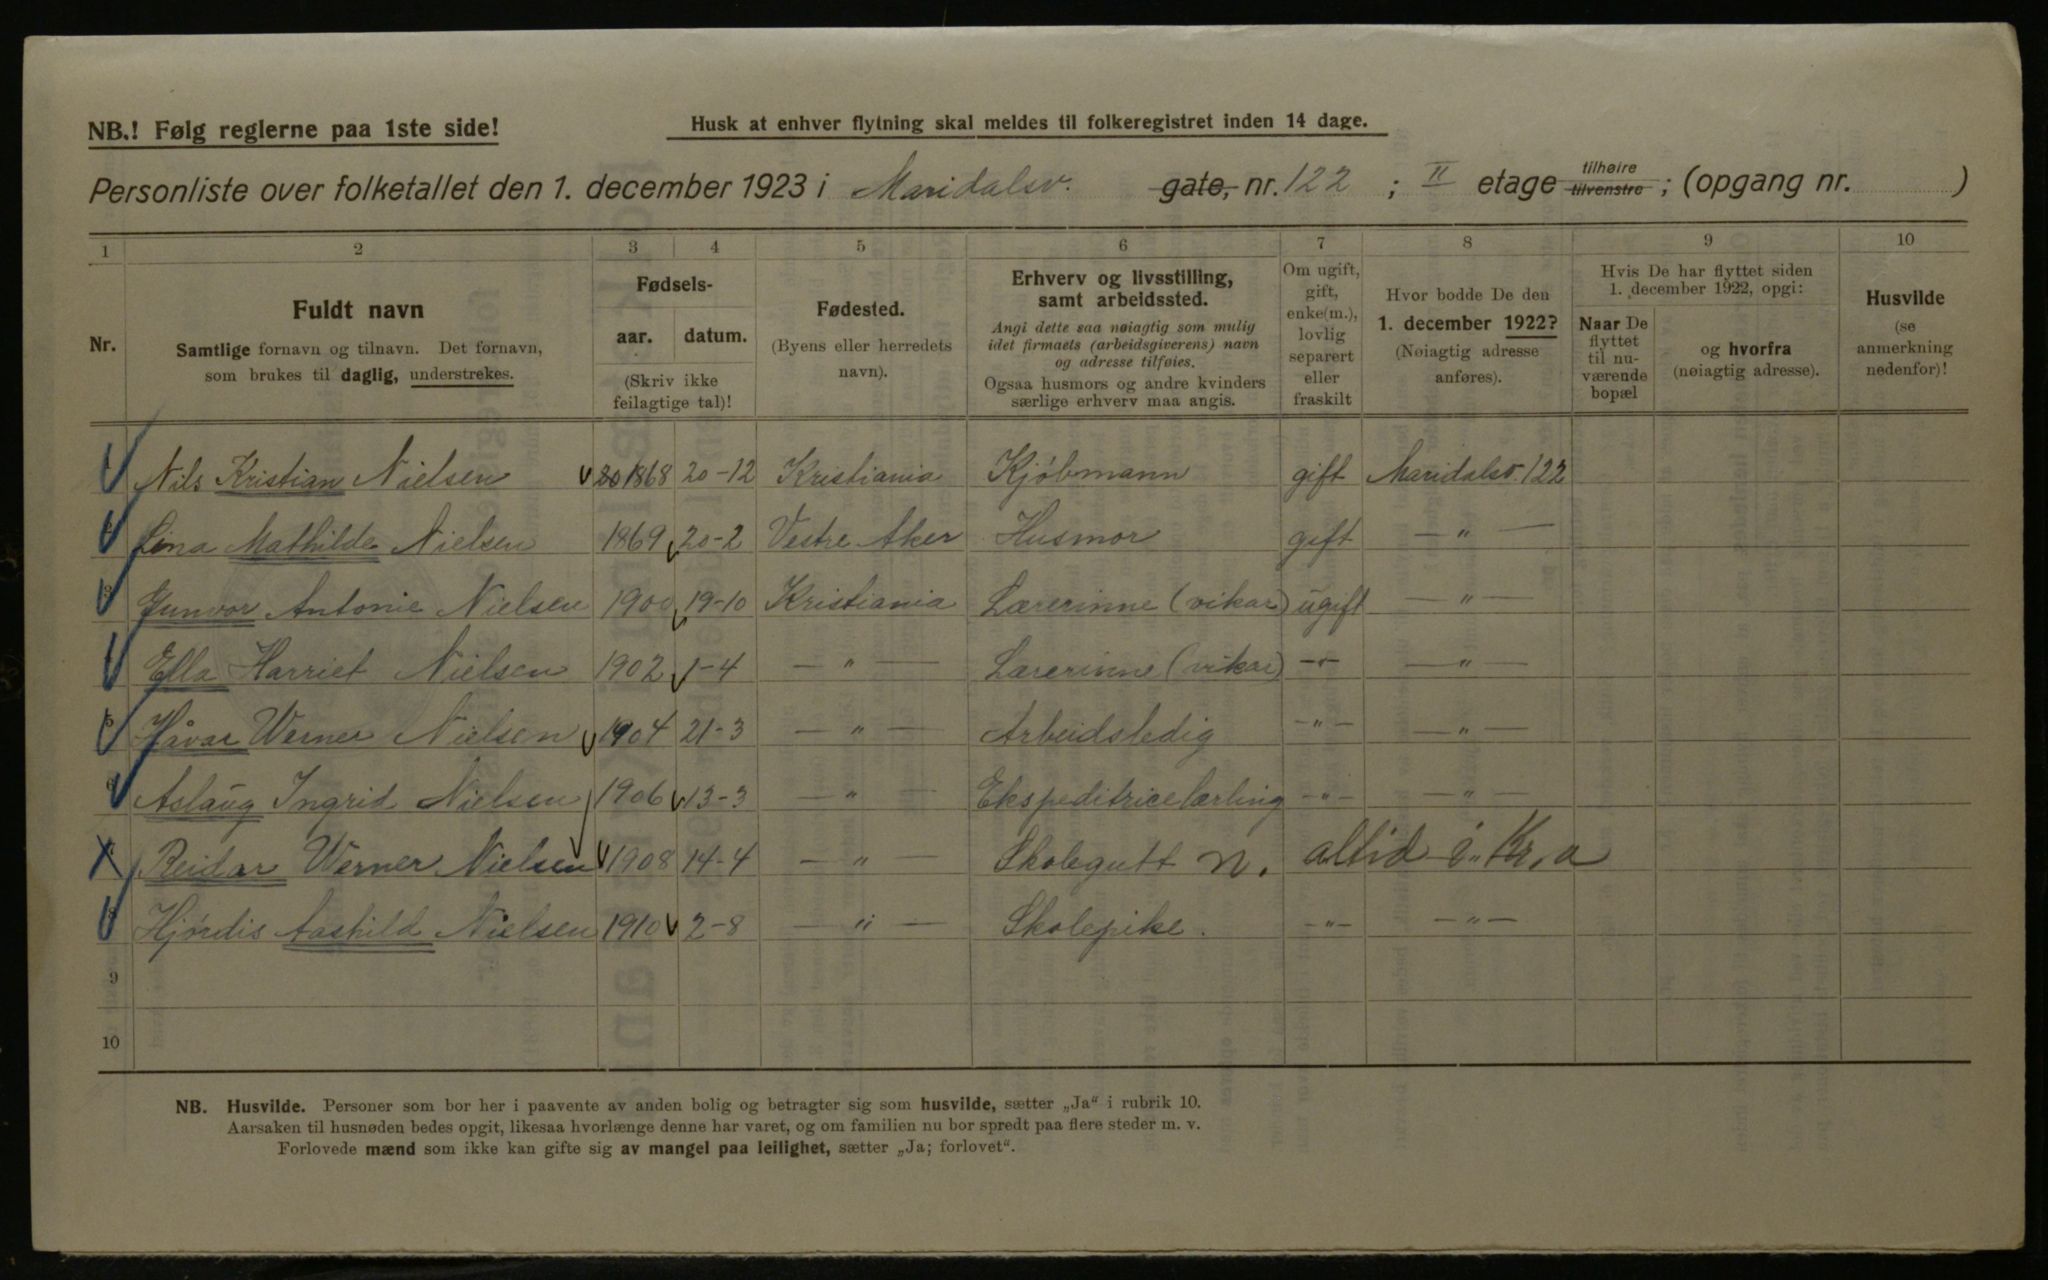 NB.! Følg reglerne paa 1ste side!
Husk at enhver flytning skal meldes til folkeregistret inden 14 dage.
Personliste over folketallet den 1. december 1923 i Maridalsv. gate, nr. 122 ; II etage tilhøire tilvenstre ; (opgang nr. )
1 2 3 4 5 6 7 8 9 10
Nr.
Fuldt navn
Samtlige fornavn og tilnavn. Det fornavn,
som brukes til daglig, understrekes.
Fødsels-
aar. datum.
(Skriv ikke
feilagtige tal)!
Fødested.
(Byens eller herredets
navn).
Erhverv og livsstilling,
samt arbeidssted.
Angi dette saa nøiagtig som mulig
idet firmaets (arbeidsgiverens) navn
og adresse tilføies.
Ogsaa husmors og andre kvinders
særlige erhverv maa angis.
Om ugift,
gift,
enke(m.),
lovlig
separert
eller
fraskilt
Hvor bodde De den
1. december 1922?
(Nøiagtig adresse
anføres).
Hvis De har flyttet siden
1. december 1922, opgi:
Naar De
flyttet
til nu-
værende
bopæl
og hvorfra
(nøiagtig adresse).
Husvilde
(se
anmerkning
nedenfor)!
1 Nils Kristian Nielsen 20 1868 20-12 Kristiania Kjøbmann gift Maridalsv. 122
2 Lina Mathilde Nielsen 1869 20-2 Vestre Aker Husmor gift — " —
3 Gunvor Antonie Nielsen 1900 19-10 Kristiania Lærerinne (vikar) ugift — " —
4 Ella Harriet Nielsen 1902 1-4 — " — Lærerinne (vikar) — " — — " —
5 Håvar Werner Nielsen 1904 21-3 — " — Arbeidsledig — " — — " —
6 Aslaug Ingrid Nielsen 1906 13-3 — " — Ekspeditricelærling — " — — " —
7 Reidar Werner Nielsen 1908 14-4 — " — Skolegutt n. altid i Kr.a
8 Hjørdis Aashild Nielsen 1910 2-8 — " — Skolepike. — " — — " —
9
10
NB. Husvilde. Personer som bor her i paavente av anden bolig og betragter sig som husvilde, sætter „Ja" i rubrik 10.
Aarsaken til husnøden bedes opgit, likesaa hvorlænge denne har varet, og om familien nu bor spredt paa flere steder m. v.
Forlovede mænd som ikke kan gifte sig av mangel paa leilighet, sætter „Ja; forlovet".